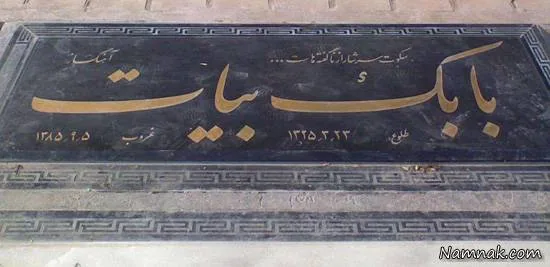 سکوت سرشار از ناگفته هاست ... آهنگساز
بابک بیات
طلوع ۱۳۲۵٫۳٫۲۳ غروب ۱۳۸۵٫۹٫۵
Namnak.com